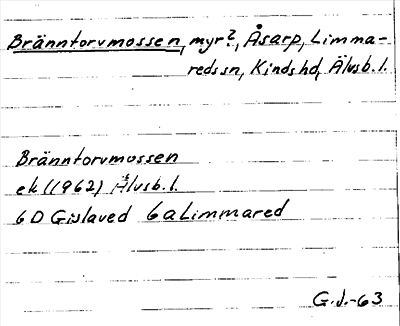 Bränntorvmossen, myr?, Åsarp, Limma-
redssn, Kinds hd, Älvsb. l.
Bränntorvmossen
ek (1962) Älvsb. l.
6 D Gislaved 6a Limmared
G.J.-63